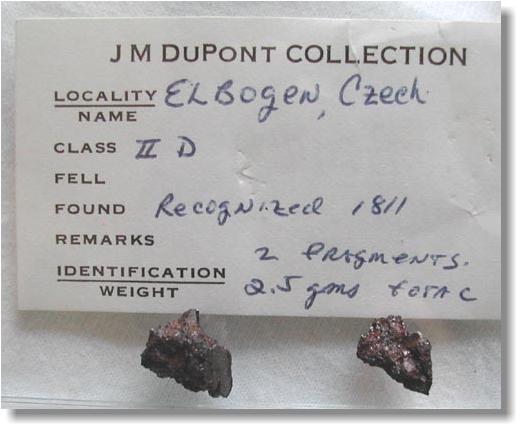 J M DUPONT COLLECTION
LOCALITY ELBOgen, Czech
NAME
CLASS II D
FELL
FOUND Recognized 1811
REMARKS
2 fragments.
IDENTIFICATION
WEIGHT 2.5 gms total